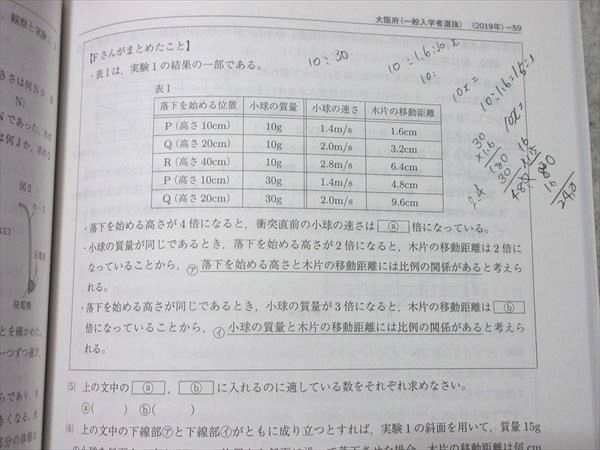 大阪府(一般入学者選抜) (2019年)－59
【Fさんがまとめたこと】
・表Ⅰは，実験1の結果の一部である。
表Ⅰ
落下を始める位置 小球の質量 小球の速さ 木片の移動距離
P(高さ10cm) 10g 1.4m/s 1.6cm
Q(高さ20cm) 10g 2.0m/s 3.2cm
R(高さ40cm) 10g 2.8m/s 6.4cm
P(高さ10cm) 30g 1.4m/s 4.8cm
Q(高さ20cm) 30g 2.0m/s 9.6cm
・落下を始める高さが4倍になると，衝突直前の小球の速さは ⓐ 倍になっている。
・小球の質量が同じであるとき，落下を始める高さが2倍になると，木片の移動距離は2倍に
なっていることから，㋐落下を始める高さと木片の移動距離には比例の関係があると考えら
れる。
・落下を始める高さが同じであるとき，小球の質量が3倍になると，木片の移動距離は ⓑ
倍になっていることから，㋑小球の質量と木片の移動距離には比例の関係があると考えら
れる。
⑸ 上の文中の ⓐ ， ⓑ に入れるのに適している数をそれぞれ求めなさい。
ⓐ( ) ⓑ( )
⑹ 上の文中の下線部㋐と下線部㋑がともに成り立つとすれば，実験1の斜面を用いて，質量15g
10:30
10:1.6=30:x
10:
10x=
10:1.6=15:x
10x=
30
×1.6
180
30
480
図Ⅱ
発電機